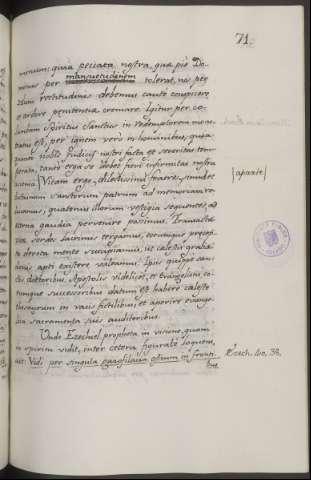 71.
venium; quia peccata nostra, quæ pie Do-
minus per mansuetudinem tolerat, nos per
zelum rectitudinis debemus caute conspicere
et ardore penitentiæ cremare. Igitur per co-
lumbam Spiritus Sanctus in redemptorem mon-
tratus est, per ignem vero in hominibus, quia
quanto nobis Judicis nostri facta est severitas tem-
perata, tanto erga se debet fieri infirmitas nostra
Vitam ergo, dilectissimi fratres, simul et
[aparte]
obitum sanctorum patrum ad memoriam re-
vocemus, quatenus illorum vestigia sequentes, ad
eterna gaudia pervenire possimus. Transactæ
vitæ sordes lacrimis tergamus, eorumque præcep-
ta devota mente suscipiamus, ut celestis gratiæ
apti existere valeamus. Ipsis quippe sanc-
tis doctoribus, Apostolis videlicet, et Evangelistis, eo-
rumque successoribus datum est habere celeste
thesaurum in vasis fictilibus, et aperire evange-
lica sacramenta suis auditoribus.
Unde Ezechiel propheta in visione, quam
in spiritu vidit, inter cetera figurate loquens,
ait: Vidi per singula gazofilacia ostium in fronti-
bus
Ezech. 40, 38.